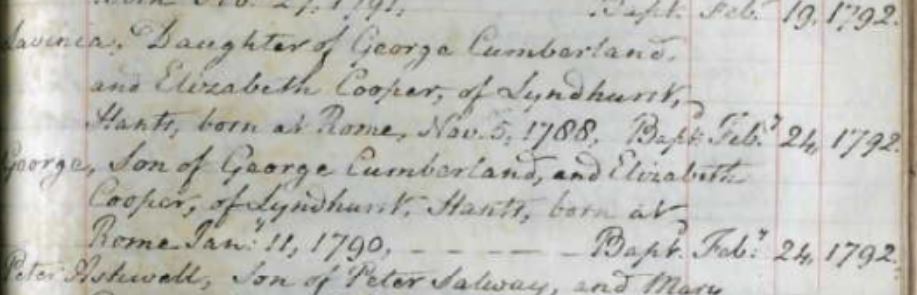 Bapt. Feb.y 19, 1792.
Lavinia, Daughter of George Cumberland,
and Elizabeth Cooper, of Lyndhurst,
Hants, born at Rome, Nov. 5, 1788, Bapt. Feb.y 24, 1792.
George, Son of George Cumberland, and Elizabeth
Cooper, of Lyndhurst, Hants, born at
Rome Jan.y 11, 1790, - - - - - Bapt. Feb.y 24, 1792.
Peter Ashwell, Son of Peter Salway, and Mary